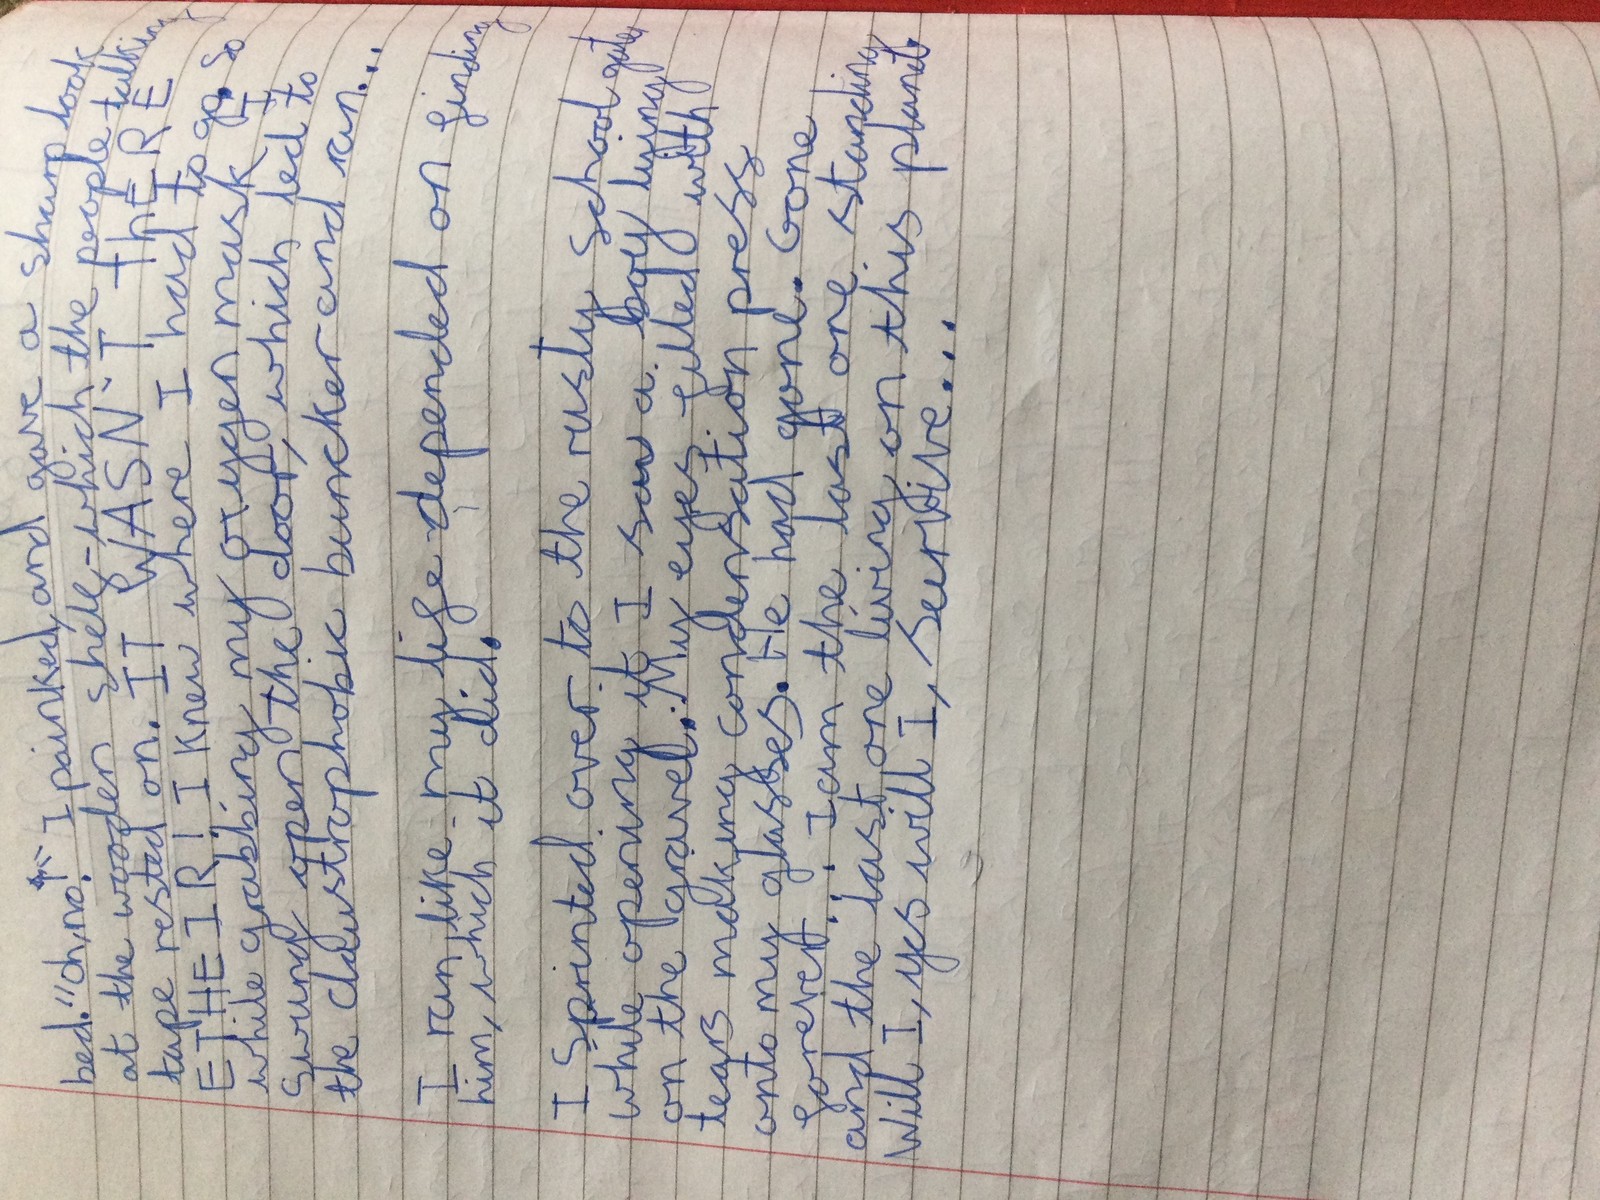 bed. "oh, no." I painked, and gave a sharp look
at the wooden shelf-which the people talking
tape rested on. IT WASN'T THERE
EITHEIR! I knew where I had to go. So
while grabbing my oxygen mask I
swung open the door, which led to
the claustrophobic buncker and ran...
I ran like my life depended on finding
him, which it did.
I sprinted over to the rusty school gate,
while opening it I saw a boey lying
on the gravel... My eyes filled with
tears making condensation press
onto my glasses. He had gone. Gone
forever... I am the last one standing
and the last one living on this planet.
Will I, yes will I, servive...